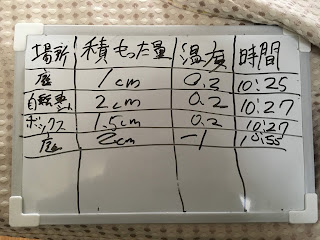 場所 積もった量 温度 時間
庭 1cm 0.2 10:25
自転車 2cm 0.2 10:27
ボックス 1.5cm 0.2 10:27
庭 2cm -1 10:55